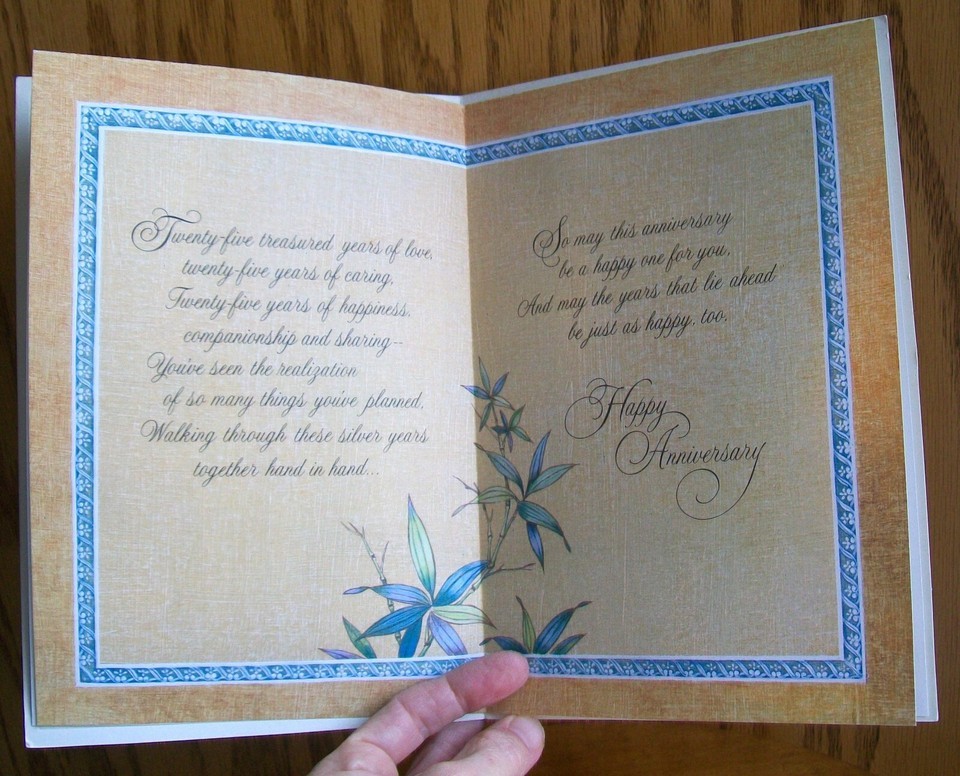 Twenty-five treasured years of love,
twenty-five years of caring,
Twenty-five years of happiness,
companionship and sharing--
You've seen the realization
of so many things you've planned,
Walking through these silver years
together hand in hand...
So may this anniversary
be a happy one for you,
And may the years that lie ahead
be just as happy, too.
Happy
Anniversary